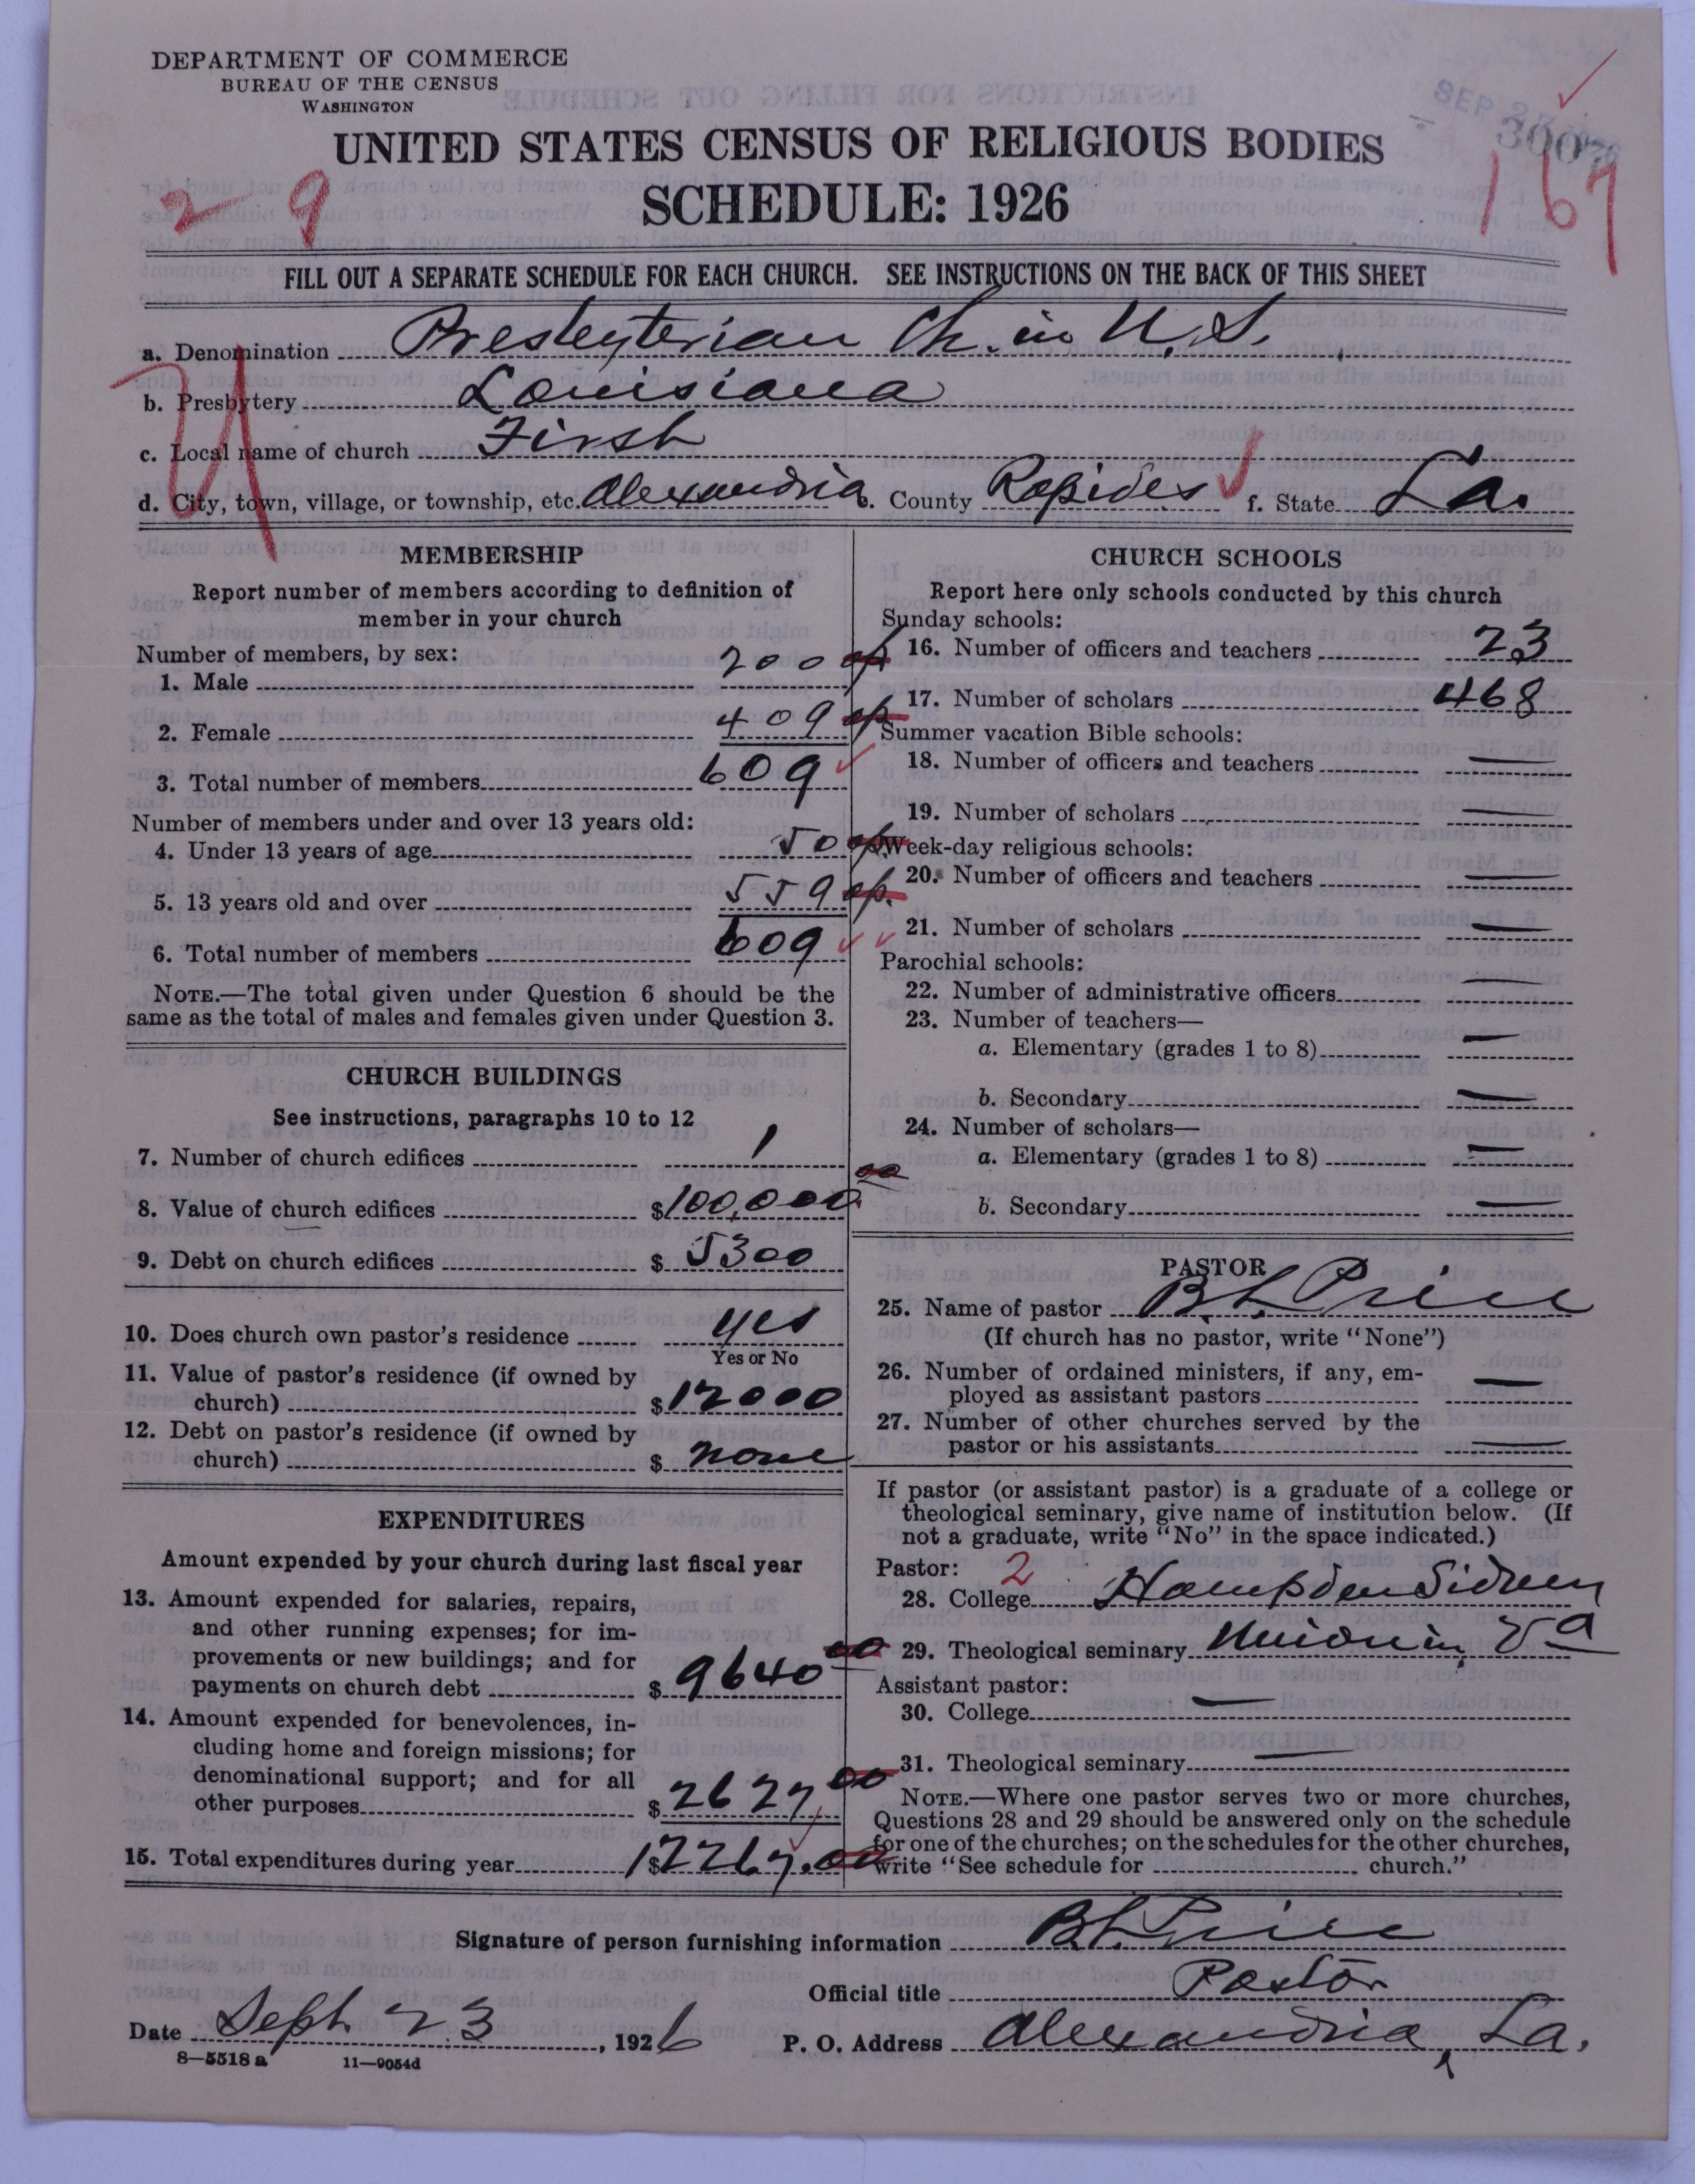 DEPARTMENT OF COMMERCE
BUREAU OF THE CENSUS
WASHINGTON
UNITED STATES CENSUS OF RELIGIOUS BODIES
SCHEDULE: 1926
2 9
167
FILL OUT A SEPARATE SCHEDULE FOR EACH CHURCH. SEE INSTRUCTIONS ON THE BACK OF THIS SHEET
a. Denomination Presbyterian Ch. in U.S.
b. Presbytery Louisiana
c. Local name of church First
d. City, town, village, or township, etc. Alexandria e. County Rapides f. State La.
MEMBERSHIP
Report number of members according to definition of
member in your church
Number of members, by sex:
1. Male 200
2. Female 409
3. Total number of members 609
Number of members under and over 13 years old:
4. Under 13 years of age 50
5. 13 years old and over 559
6. Total number of members 609
NOTE.—The total given under Question 6 should be the
same as the total of males and females given under Question 3.
CHURCH BUILDINGS
See instructions, paragraphs 10 to 12
7. Number of church edifices 1
8. Value of church edifices $100,000.00
9. Debt on church edifices $ 5300
10. Does church own pastor's residence yes
Yes or No
11. Value of pastor's residence (if owned by
church) $12000
12. Debt on pastor's residence (if owned by
church) $ none
EXPENDITURES
Amount expended by your church during last fiscal year
13. Amount expended for salaries, repairs,
and other running expenses; for im-
provements or new buildings; and for
payments on church debt $ 9640 00
14. Amount expended for benevolences, in-
cluding home and foreign missions; for
denominational support; and for all
other purposes $ 2627 00
15. Total expenditures during year $12267.00
CHURCH SCHOOLS
Report here only schools conducted by this church
Sunday schools:
16. Number of officers and teachers 23
17. Number of scholars 468
Summer vacation Bible schools:
18. Number of officers and teachers —
19. Number of scholars —
Week-day religious schools:
20. Number of officers and teachers —
21. Number of scholars —
Parochial schools:
22. Number of administrative officers —
23. Number of teachers—
a. Elementary (grades 1 to 8) —
b. Secondary —
24. Number of scholars—
a. Elementary (grades 1 to 8) —
b. Secondary —
PASTOR
25. Name of pastor B L Price
(If church has no pastor, write "None")
26. Number of ordained ministers, if any, em-
ployed as assistant pastors —
27. Number of other churches served by the
pastor or his assistants —
If pastor (or assistant pastor) is a graduate of a college or
theological seminary, give name of institution below. (If
not a graduate, write "No" in the space indicated.)
Pastor: 2
28. College Hampden Sidney
29. Theological seminary Union in Va
Assistant pastor:
30. College —
31. Theological seminary —
NOTE.—Where one pastor serves two or more churches,
Questions 28 and 29 should be answered only on the schedule
for one of the churches; on the schedules for the other churches,
write "See schedule for church."
Signature of person furnishing information B L Price
Official title Pastor
Date Sept 23, 1926 P. O. Address Alexandria, La.
8—5518 a 11—9054d